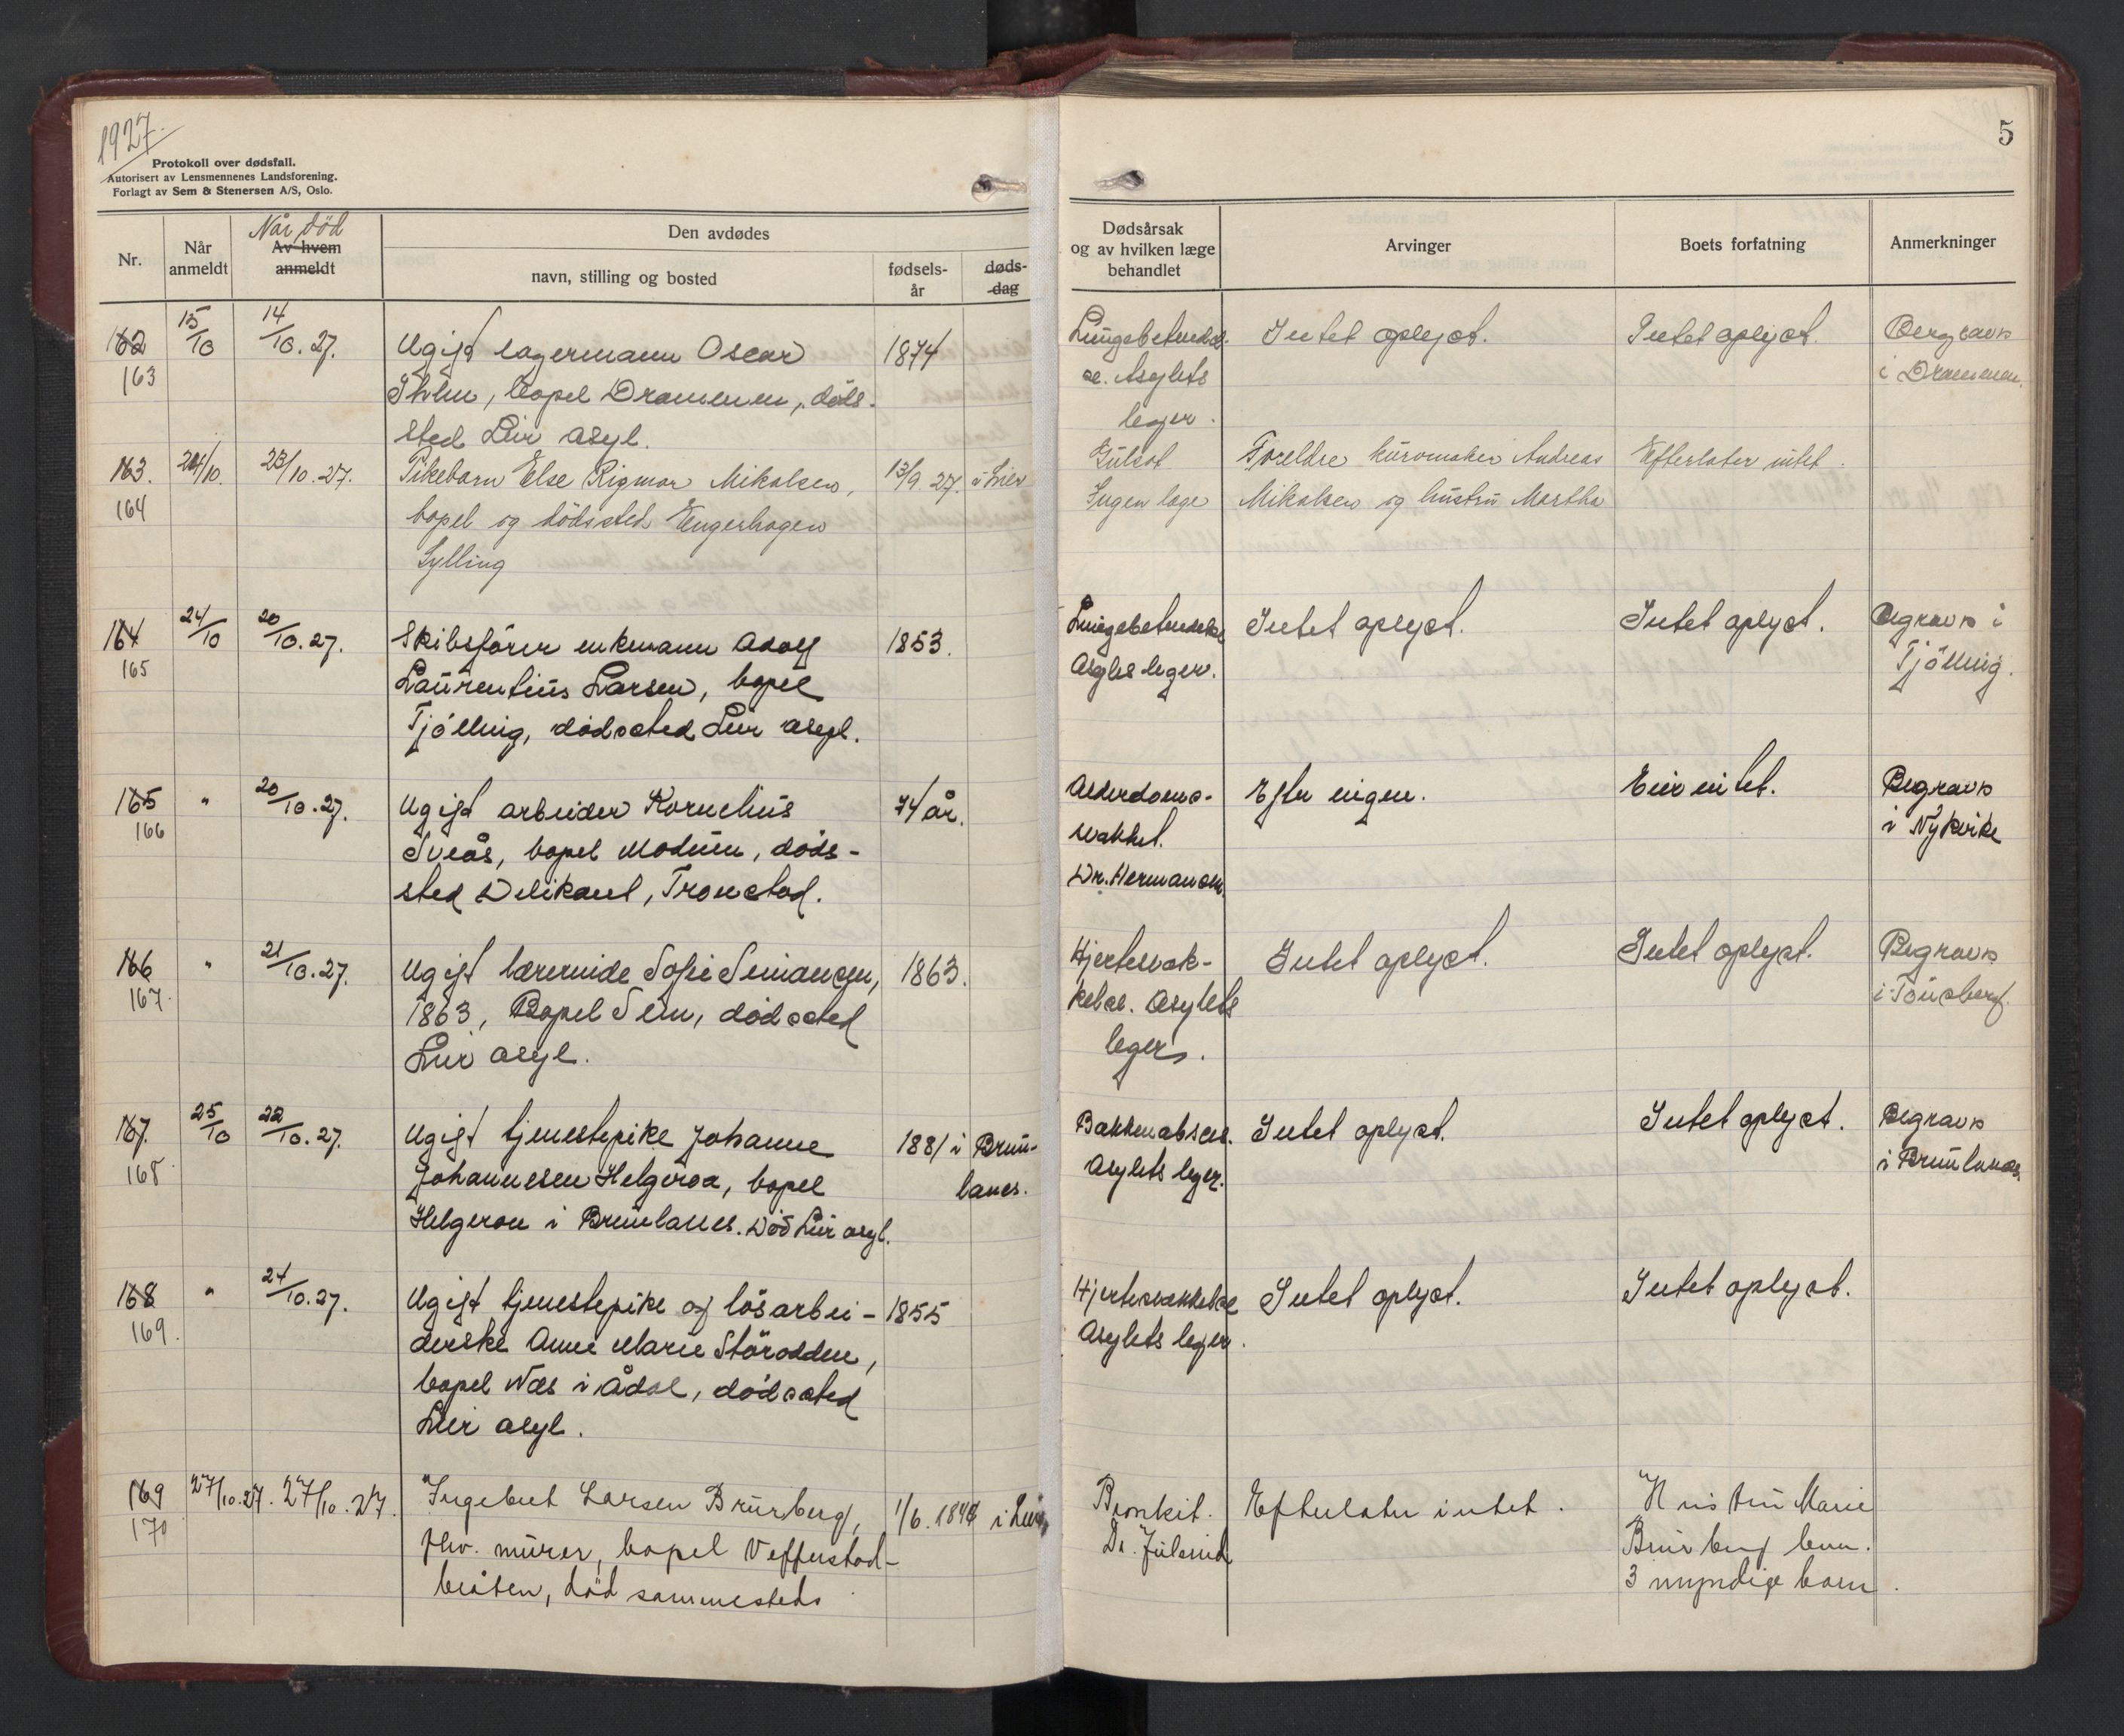 1927.
Protokoll over dødsfall.
Autorisert av Lensmennenes Landsforening.
Forlagt av Sem & Stenersen A/S, Oslo.
5
Nr.
Når anmeldt
Når död
Av hvem anmeldt
Den avdødes
navn, stilling og bosted
fødsels-
år
døds-
dag
Dødsårsak
og av hvilken læge
behandlet
Arvinger
Boets forfatning
Anmerkninger
162
163
15/10
14/10.27.
Ugift lagermann Oscar
bopel Drammen, döds-
sted Lier asyl.
1874
Asylets
leger.
Intet oplyst.
Intet oplyst.
i Drammen.
163.
164
24/10.
23/10.27.
Pikebarn Else Rigmor Mikalsen,
bopel og dödssted Engerhagen
Sylling
13/9.27. i Lier
Gulsot
Ingen lege
Foreldre kurvmaker Andreas
Mikalsen og hustru Martha
Efterlater intet.
164
165
24/10
20/10.27.
Skibsförer enkemann Adolf
Laurentius Larsen, bopel
Tjölling, dödssted Lier asyl.
1853.
Lungebetendelse
leger.
Intet oplyst.
Intet oplyst.
Begraves i
Tjölling.
165
166
"
20/10.27.
Ugift arbeider Kornelius
Sveås, bopel Modum, döds-
sted Delikant, Tronstad.
74 år.
Alderdoms-
svakhet.
Dr. Hermansen.
Efter ingen.
Eier intet.
Begraves
i Nykirke
166
167.
"
21/10.27.
Ugift lærerinde Sofie Simonsen,
1863, Bopel Sem, dödssted
Lier asyl.
1863.
Hjertesvæk-
kelse. Asylets
leger.
Intet oplyst.
Intet oplyst.
Begraves
i Tönsberg.
167.
168.
25/10
22/10.27.
Ugift tjenestepike Johanne
Johannesen Helgeroa, bopel
Helgeroa i Brunlanes. Död Lier asyl.
1881 i Brun-
lanes.
Asylets leger.
Intet oplyst.
Intet oplyst.
Begraves
i Brunlanes.
168
169.
"
24/10.27.
Ugift tjenestepike og lösarbei-
derske Anne Marie Störodden,
bopel Næs i Ådal, dödssted
Lier asyl.
1855
Hjertesvækkelse
Asylets leger.
Intet oplyst.
Intet oplyst.
169
170
27/10.27.
27/10.27.
Ingebret Larsen Brurberg,
fhv. murer, bopel
bråten, död sammesteds
i Lier
Bronkit.
Dr. Julsrud
Efterlater intet.
Hustru Marie
Brurberg
3 myndige barn.